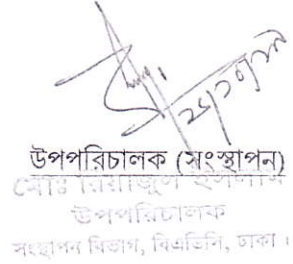 উপপরিচালক (সংস্থাপন)
মোঃ রিয়াজুল ইসলাম
উপপরিচালক
সংস্থাপন বিভাগ, বিএডিসি, ঢাকা।